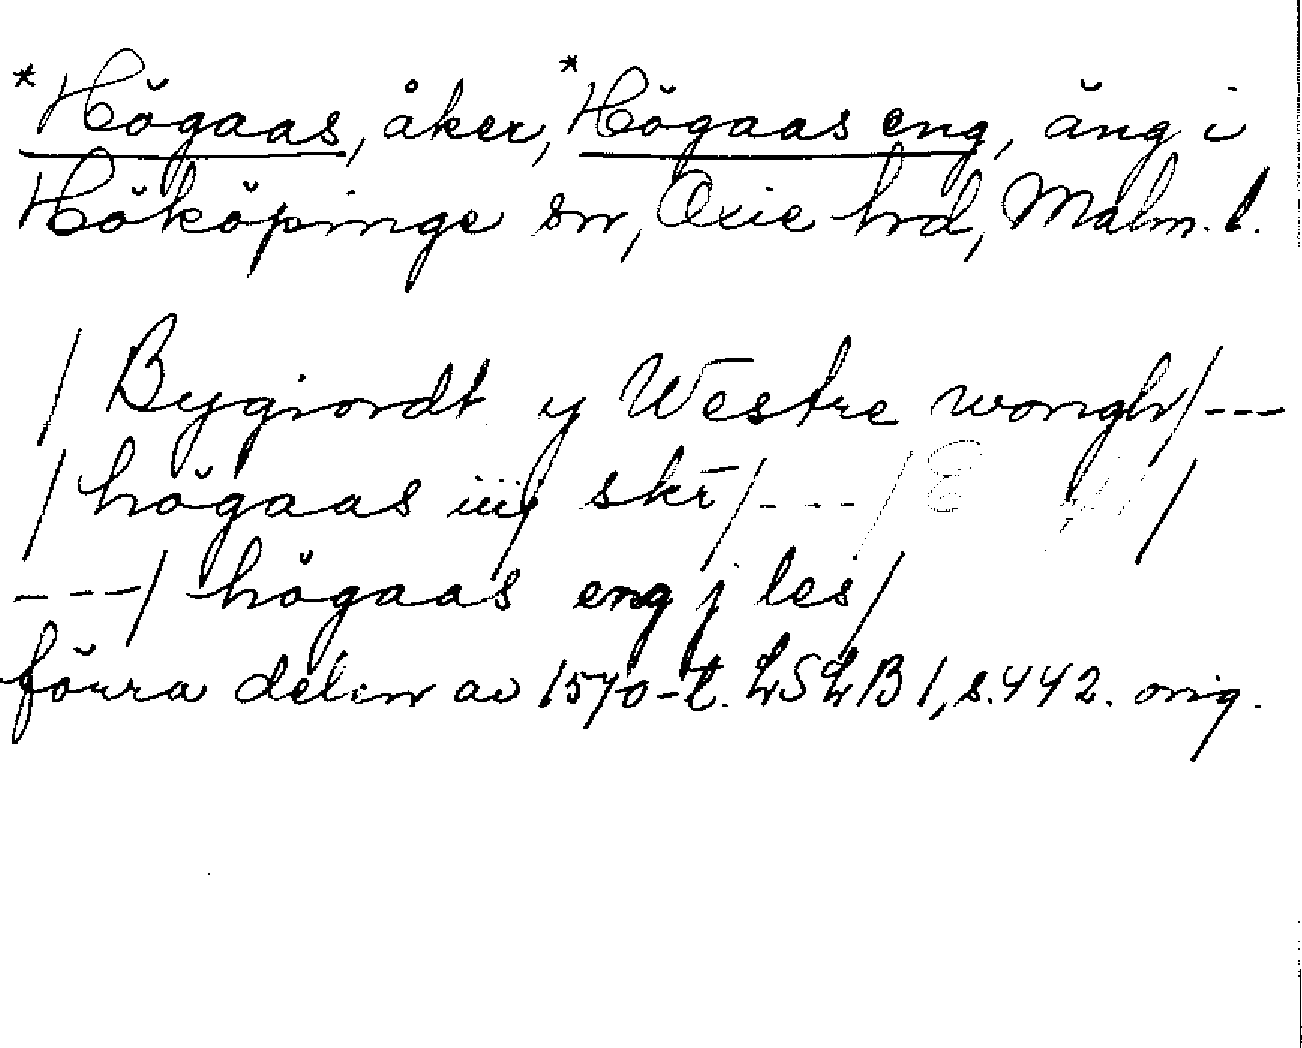 *Högaas, åker, *Högaas eng, äng i
Hököpinge sn, Oxie hd, Malm. l.
/ Bygiordt y Westre wongh/ ---
/ högaas iiij skr̄/ --- / E /
--- / högaas eng j les/
förra delen av 1570-t. LSLB 1, s. 442. orig.